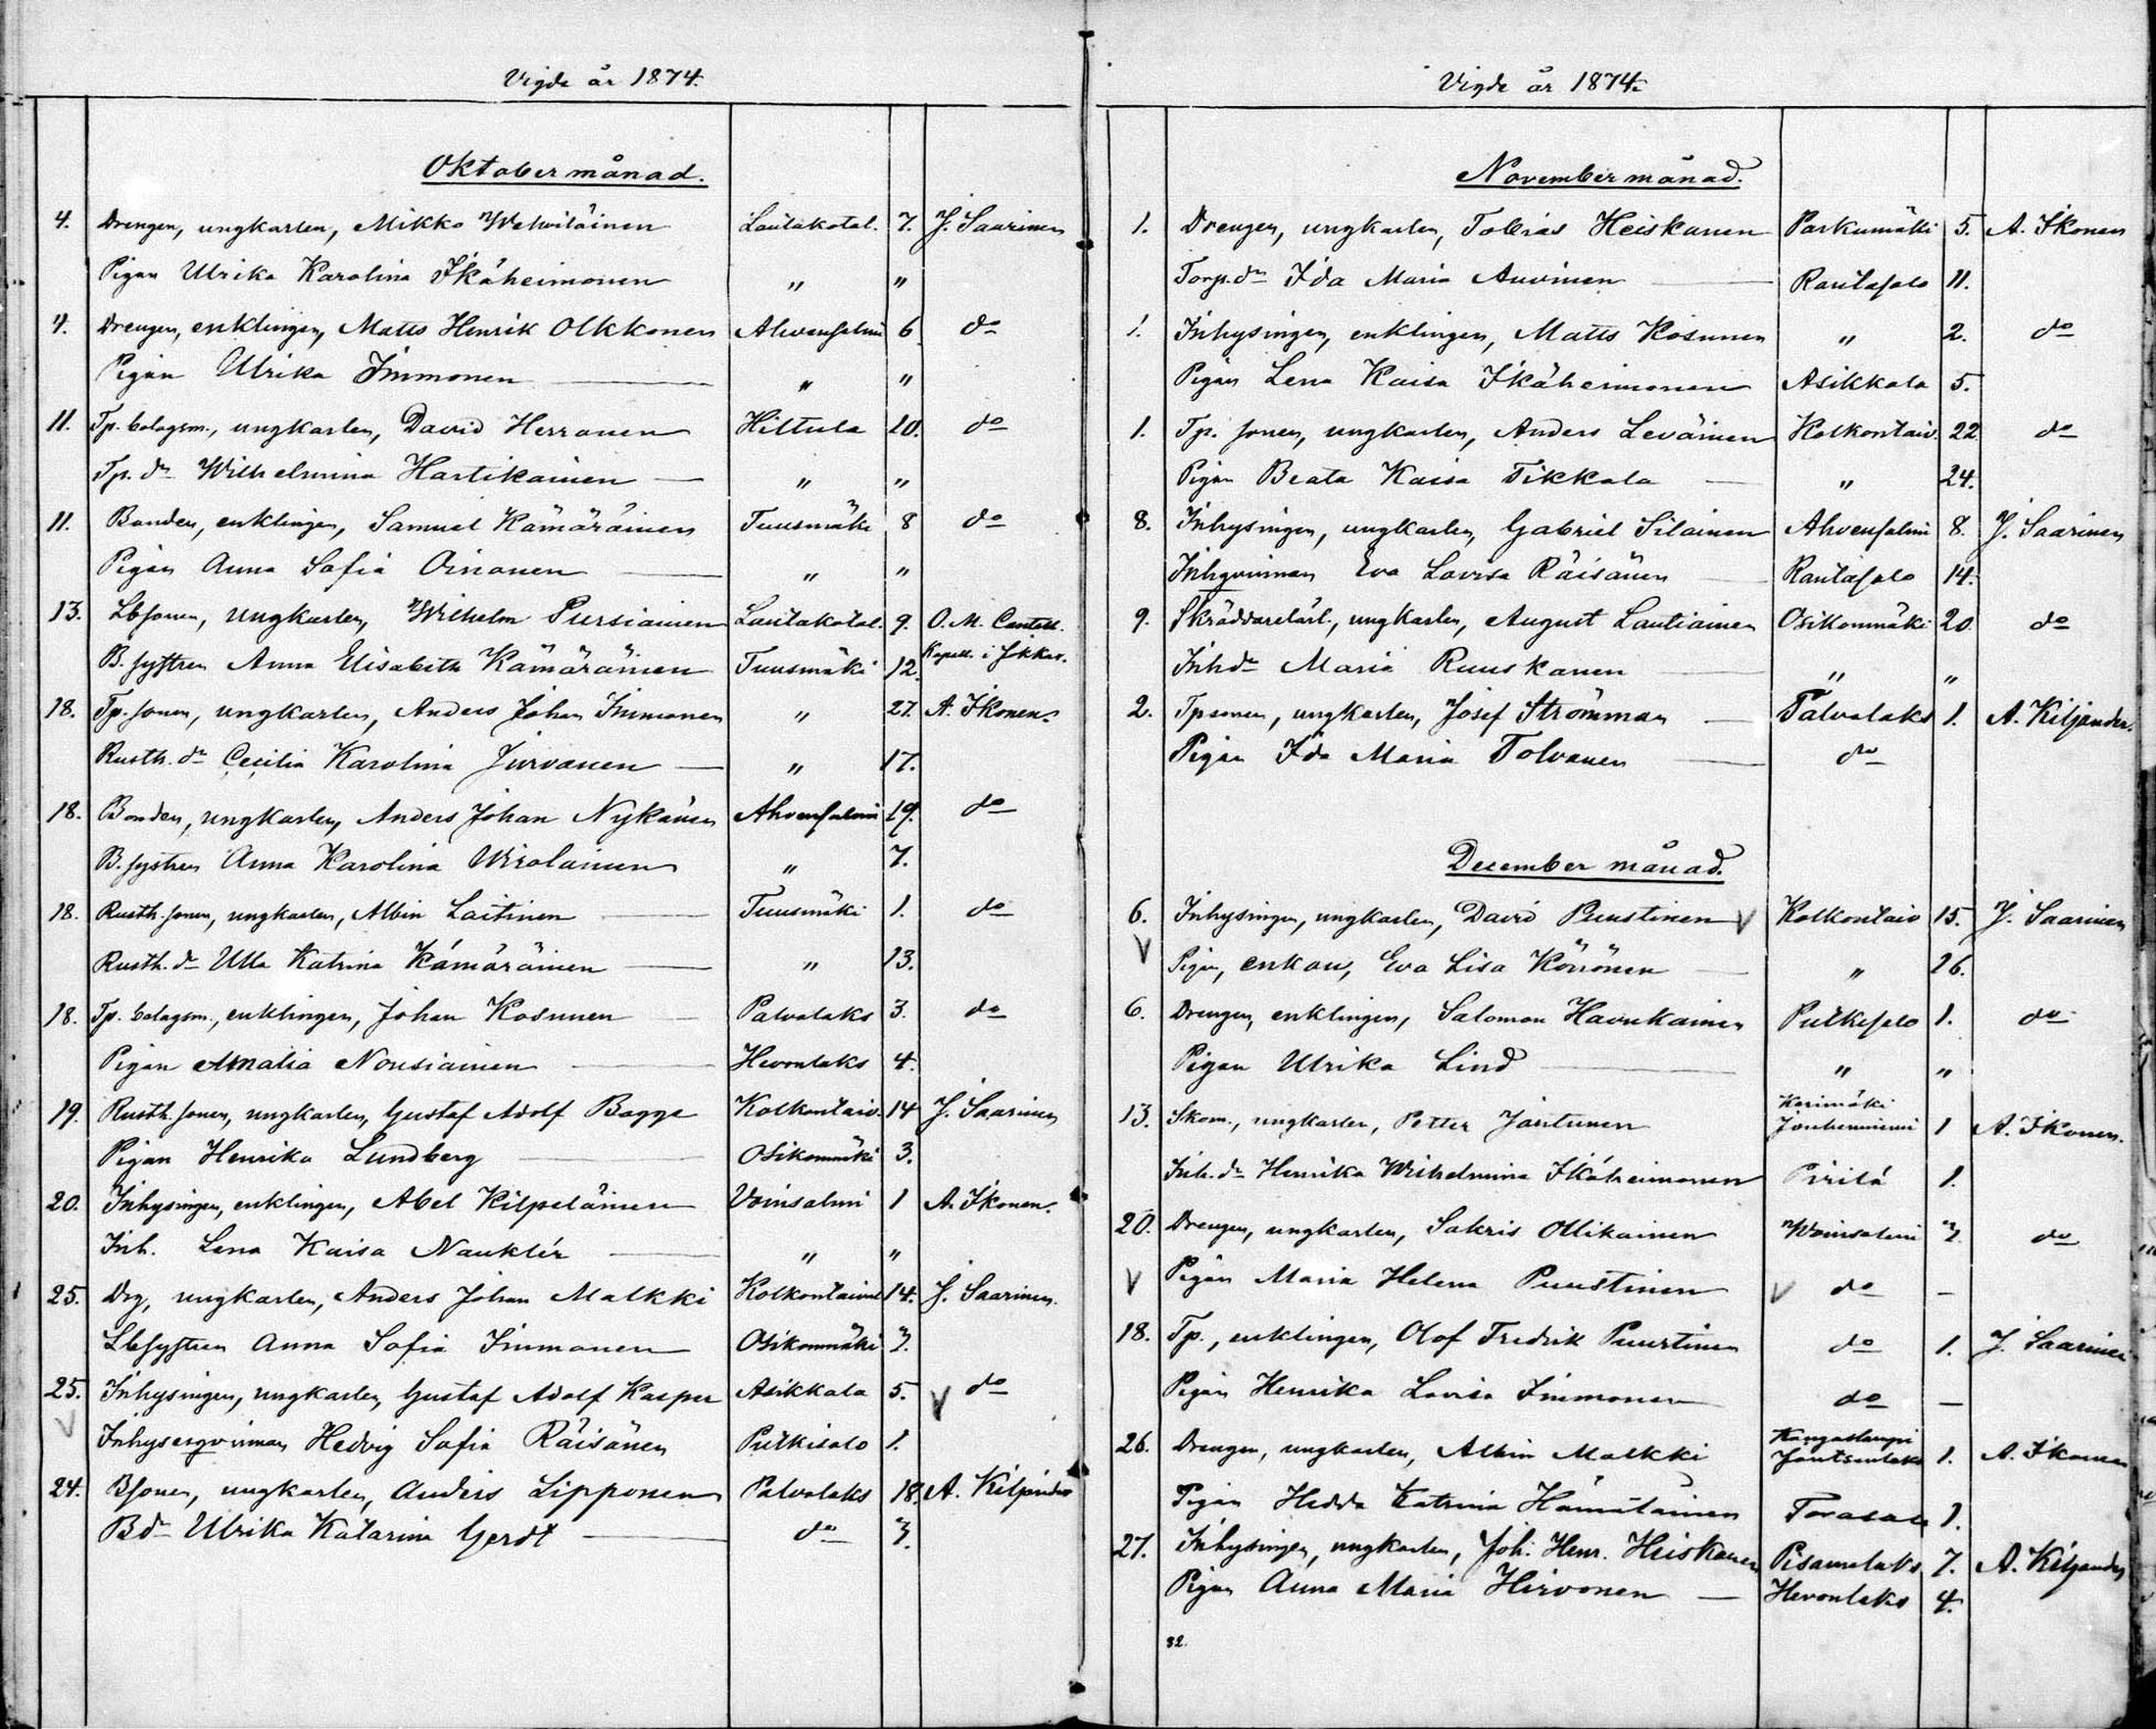 Vigde år 1874.
Oktober månad.
4. Drengen, ungkarlen, Mikko Wehviläinen Lautakotal. 7. J. Saarinen
Pigan Ulrika Karolina Ikäheimonen " "
4. Drengen, enklingen, Matts Henrik Olkkonen Ahvensalmi 6 do
Pigan Ulrika Immonen " "
11. Tp. bolagsm., ungkarlen, David Herranen Hiltula 20. do
Tp. dr Wilhelmina Hartikainen " "
11. Bonden, enklingen, Samuel Kämäräinen Tuusmäki 8 do
Pigan Anna Sofia Oinonen " "
13. Lbsonen, ungkarlen, Wilhelm Pursiainen Lautakotal. 9. O. M. Cantell.
B. systren Anna Elisabeth Kämäräinen Tuusmäki 12. Kapell. i Jokkas.
18. Tp. sonen, ungkarlen, Anders Johan Immonen " 27. A. Ikonen.
Rusth. dr Cecilia Karolina Jurvanen " 17.
18. Bonden, ungkarlen, Anders Johan Nykänen Ahvensalmi 19. do
B. systren Anna Karolina Wirolainen " 7.
18. Rusth. sonen, ungkarlen, Albin Laitinen Tuusmäki 1. do
Rusth. dr Ulla Katrina Kämäräinen " 13.
18. Tp. bolagsm., enklingen, Johan Kosunen Palvalaks 3. do
Pigan Amalia Nousiainen Hevonlaks 4.
19. Rusth. sonen, ungkarlen, Gustaf Adolf Bagge Kolkontaiv. 14 J. Saarinen
Pigan Henrika Lundberg Osikonmäki 3.
20. Inhysingen, enklingen, Abel Kilpeläinen Voinsalmi 1 A. Ikonen.
Inh. Lena Kaisa Nauklér " "
25. Drg, ungkarlen, Anders Johan Malkki Kolkontaival 14. J. Saarinen.
Lbsystren Anna Sofia Immonen Osikonmäki 3.
25. Inhysingen, ungkarlen, Gustaf Adolf Kasper Asikkala 5. V do
V Inhysesqvinnan Hedvig Sofia Räisänen Putkisalo 1.
24. Bsonen, ungkarlen, Anders Lipponen Palvalaks 18. A. Kiljander
Bdr Ulrika Katarina Gerdt do 3.
Vigde år 1874.
November månad.
1. Drengen, ungkarlen, Tobias Heiskanen Parkumäki 5. A. Ikonen
Torp. dr Ida Maria Auvinen Rantasalo 11.
1. Inhysingen, enklingen, Matts Kosunen " 2. do
Pigan Lena Kaisa Ikäheimonen Asikkala 5.
1. Tp. sonen, ungkarlen, Anders Leväinen Kolkontaiv. 22. do
Pigan Beata Kaisa Tikkala " 24.
8. Inhysingen, ungkarlen, Gabriel Silainen Ahvensalmi 8. J. Saarinen
Inhqvinnan Eva Lovisa Räisänen Rantasalo 14.
9. Skräddarelärl., ungkarlen, August Lautiainen Osikonmäki 20 do
Inhdr Maria Ruuskanen " "
2. Tpsonen, ungkarlen, Josef Strömman Palvalaks 1. A. Kiljander.
Pigan Ida Maria Tolvanen do
December månad.
6. Inhysingen, ungkarlen, David Puustinen V Kolkontaiv 15. J. Saarinen
V Pigan, enkan, Eva Lisa Könönen " 26.
6. Drengen, enklingen, Salomon Haukainen Putkisalo 1. do
Pigan Ulrika Lind " "
13. Skom., ungkarlen, Petter Jantunen Kerimäki Jouhenniemi 1 A. Ikonen.
Inh. dr Henrika Wilhelmina Ikäheimonen Pirilä 1.
20. Drengen, ungkarlen, Sakris Ollikainen Woinsalmi 3 do
V Pigan Maria Helena Puustinen V do –
18. Tp., enklingen, Olof Fredrik Puustinen do 1. J. Saarinen
Pigan Henrika Lovisa Immonen do –
26. Drengen, ungkarlen, Albin Malkki Kangaslampi 1. A. Ikonen
Pigan Hedda Katrina Hämäläinen Torasalo 1.
27. Inhysingen, ungkarlen, Joh. Henr. Heiskanen Pisamalaks 7. A. Kiljander
Pigan Anna Maria Hirvonen Hevonlaks 4.
32.